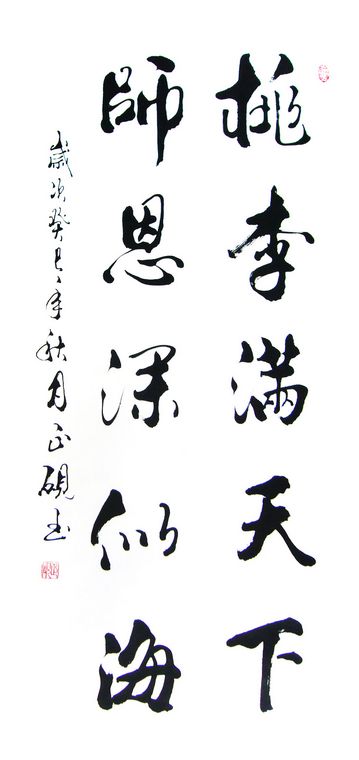 桃李滿天下
師恩深似海
歲次癸巳年秋月正硯书